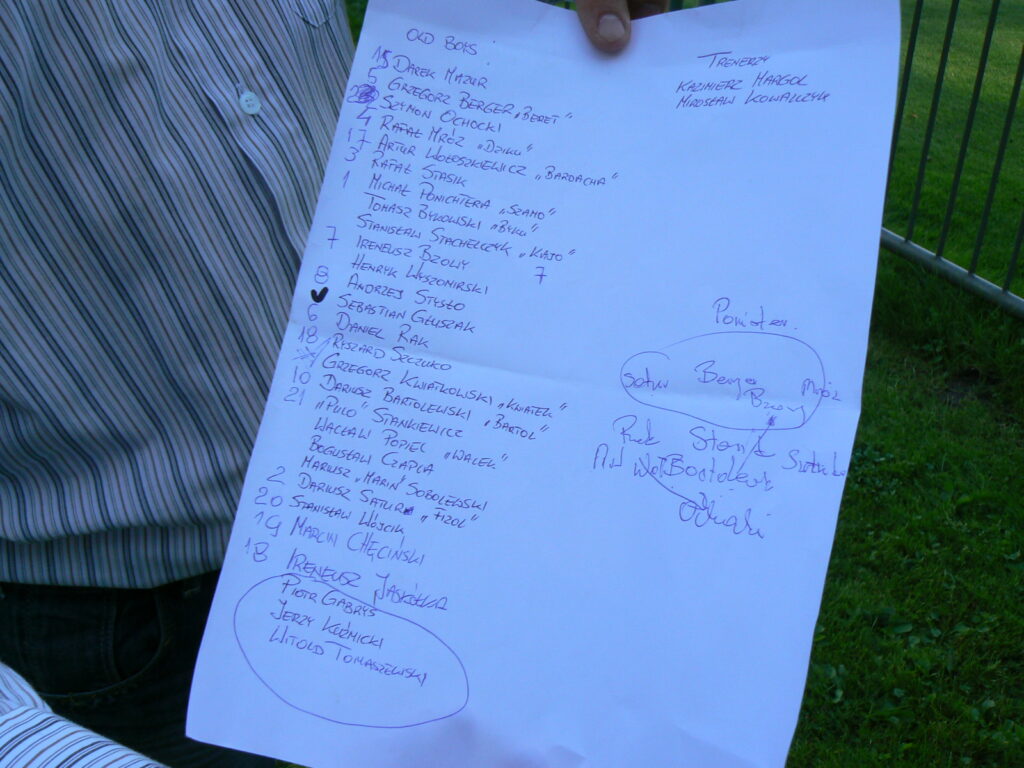 OLD BOYS :
15 DAREK MAZUR
5 GRZEGORZ BERGER „BERET"
SZYMON OCHOCKI
4 RAFAŁ MRÓZ „DZIKU"
17 ARTUR WOŁOSZKIEWICZ „BARDACHA"
3 RAFAŁ STASIK
1 MICHAŁ PONICHTERA „SZAMO"
TOMASZ BYKOWSKI „BYKU"
STANISŁAW STACHELCZYK „KAJO"
7 IRENEUSZ BZOWY 7
HENRYK WYSZOMIRSKI
8 ANDRZEJ STYSŁO
SEBASTIAN GŁUSZAK
6 DANIEL RAK
18 RYSZARD SZCZUKO
GRZEGORZ KWIATKOWSKI „KWIATEK"
10 DARIUSZ BARTOLEWSKI „BARTOL"
21 „PULO" STANKIEWICZ
WACŁAW POPIEL „WACEK"
BOGUSŁAW CZAPLA
MARIUSZ „MARIN" SOBOLEWSKI
2 DARIUSZ SATUR „FIZOL"
20 STANISŁAW WÓJCIK
19 MARCIN CHĘCIŃSKI
18 IRENEUSZ JASKÓŁKA
PIOTR GABRYŚ
JERZY KUŹMICKI
WITOLD TOMASZEWSKI
TRENERZY
KAZIMIERZ MARGOL
MIROSŁAW KOWALCZYK
Satur Berger Mróz
Bzowy
Rak Stasik